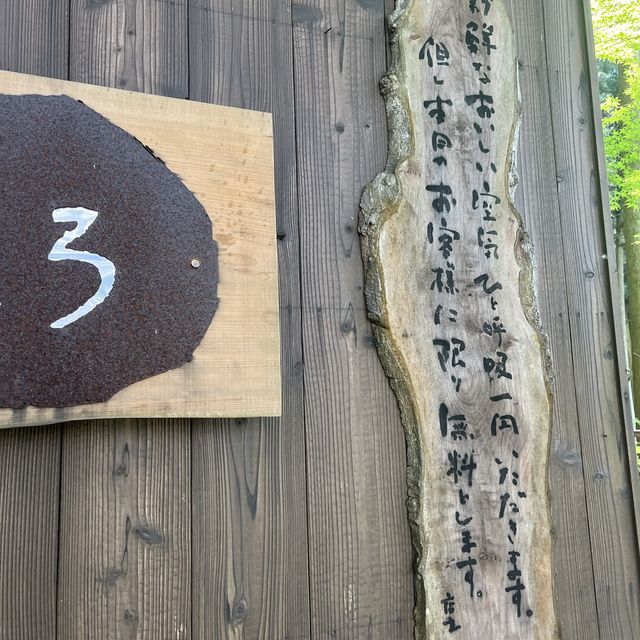 新鮮なおいしい空気ひと呼吸一円、いただきます。
但し本日のお客様に限り無料とします。
店主
ろ